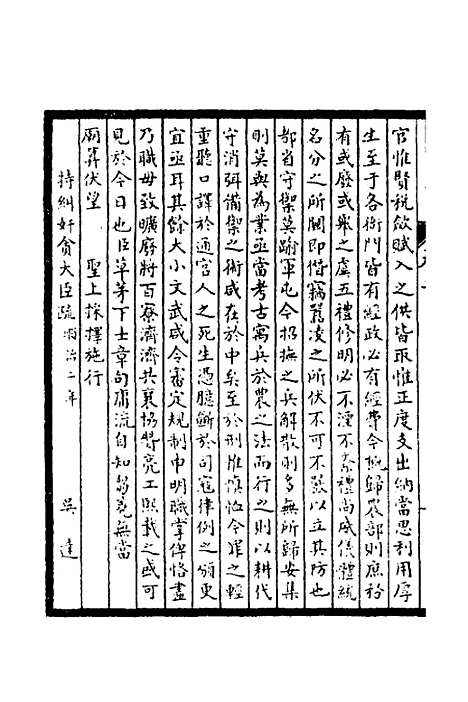 官惟賢稅斂賦入之供皆取惟正度支出納當思利用厚
生至于各衙門皆有經政必有經費今概歸農部則庶務
有或廢或舉之虞五禮修明必不淫不紊禮尚威儀體統
名分之所關即僭竊囂凌之所伏不可不嚴以立其防也
部省守禦莫踰軍屯今招撫之兵解散則多無所歸安集
則莫與為業亟當考古寓兵於農之法而行之則以耕代
守消弭備禦之術咸在於中矣至於刑惟慎恤今罪之輕
重聽口譯於通官人之死生憑臆斷於司寇律例之頒更
宜亟耳其餘大小文武咸令審定規制申明職掌俾恪盡
乃職毋致曠廢將百寮濟濟共襄協贊亮工熙載之盛可
見於今日也臣草茅下士章句庸流自知芻蕘無當
兩葬伏望 聖上採擇施行
特糾奸貪大臣疏 順治二年 吳達